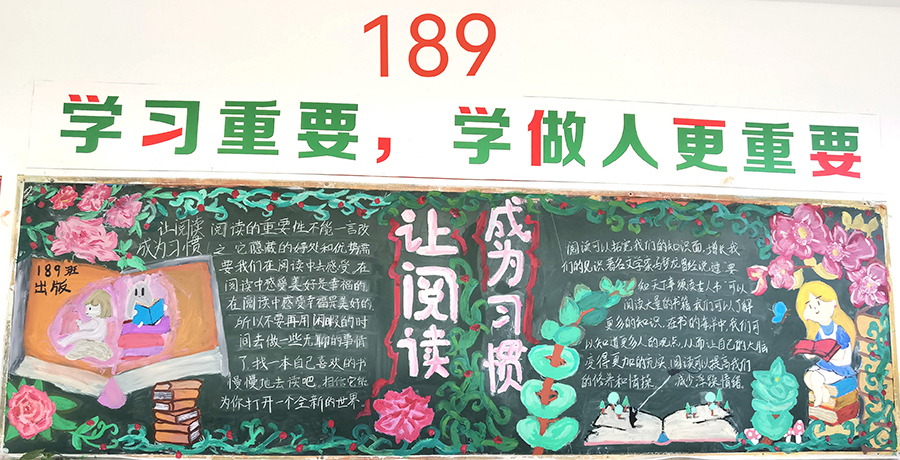 189
学习重要，学做人更重要
让阅读
成为习惯
189班
出版
阅读的重要性不能一言改
之它隐藏的好处和优势需
要我们在阅读中去感受在
阅读中感受美好是幸福的
在阅读中感受幸福是美好的
所以不要再用闲暇的时
间去做一些无聊的事情
了找一本自己喜欢的书
慢慢地去读吧 相信它能
为你打开一个全新的世界
让阅读
成为习惯
阅读可以拓宽我们的知识面,增长我
们的见识著名文学家 曾经说过 要
知天下事须读古人书 可以
阅读大量的书籍我们可以了解
更多的知识 在书的海洋中我们可
以知道更多人的观点 从而让自己的大脑
变得更加的充实 阅读可以提高我们
的修养和情操 减少浮躁情绪